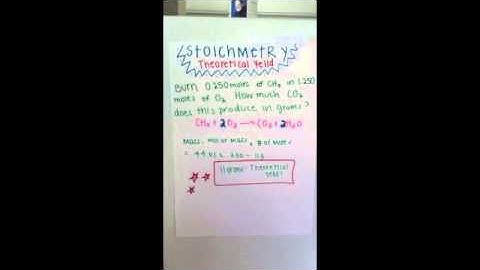 StoichMetry
Theoretical Yeild
Burn 0.250 moles of CH₄ in 1.250
moles of O₂. How much CO₂
does this produce in grams?
CH₄ + 2O₂ → CO₂ + 2H₂O
Mass = mol of mass × # of moles
= 44
11 grams Theoretical
yeild!